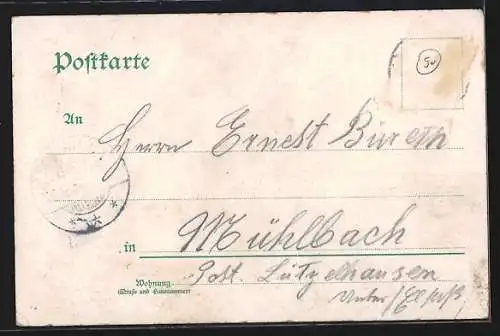 Postkarte
50
An
Herrn Ernest Bureth
in Mühlbach
Wohnung
(Straße und Hausnummer)
Post. Lützelhausen
Unter/Elsaß